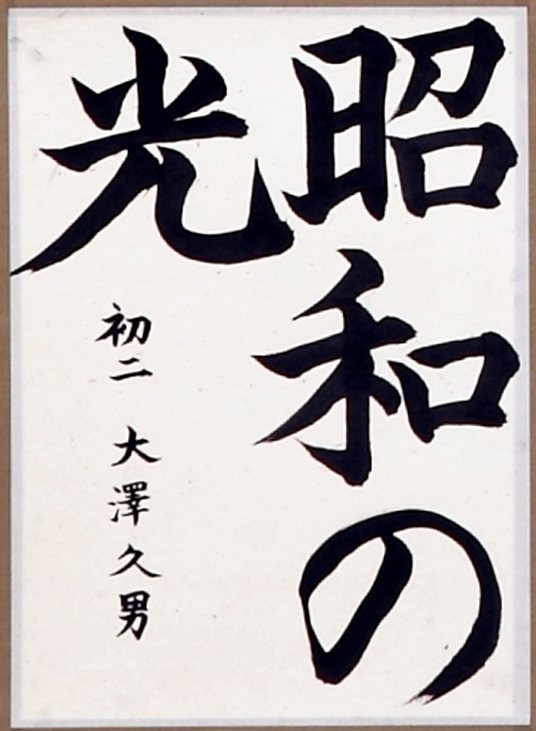 昭和の
光
初二 大澤久男